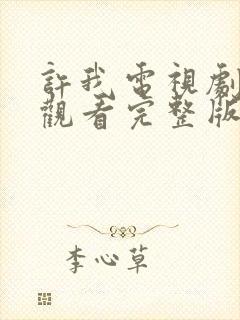 許我電視劇
觀看完整版
李心草